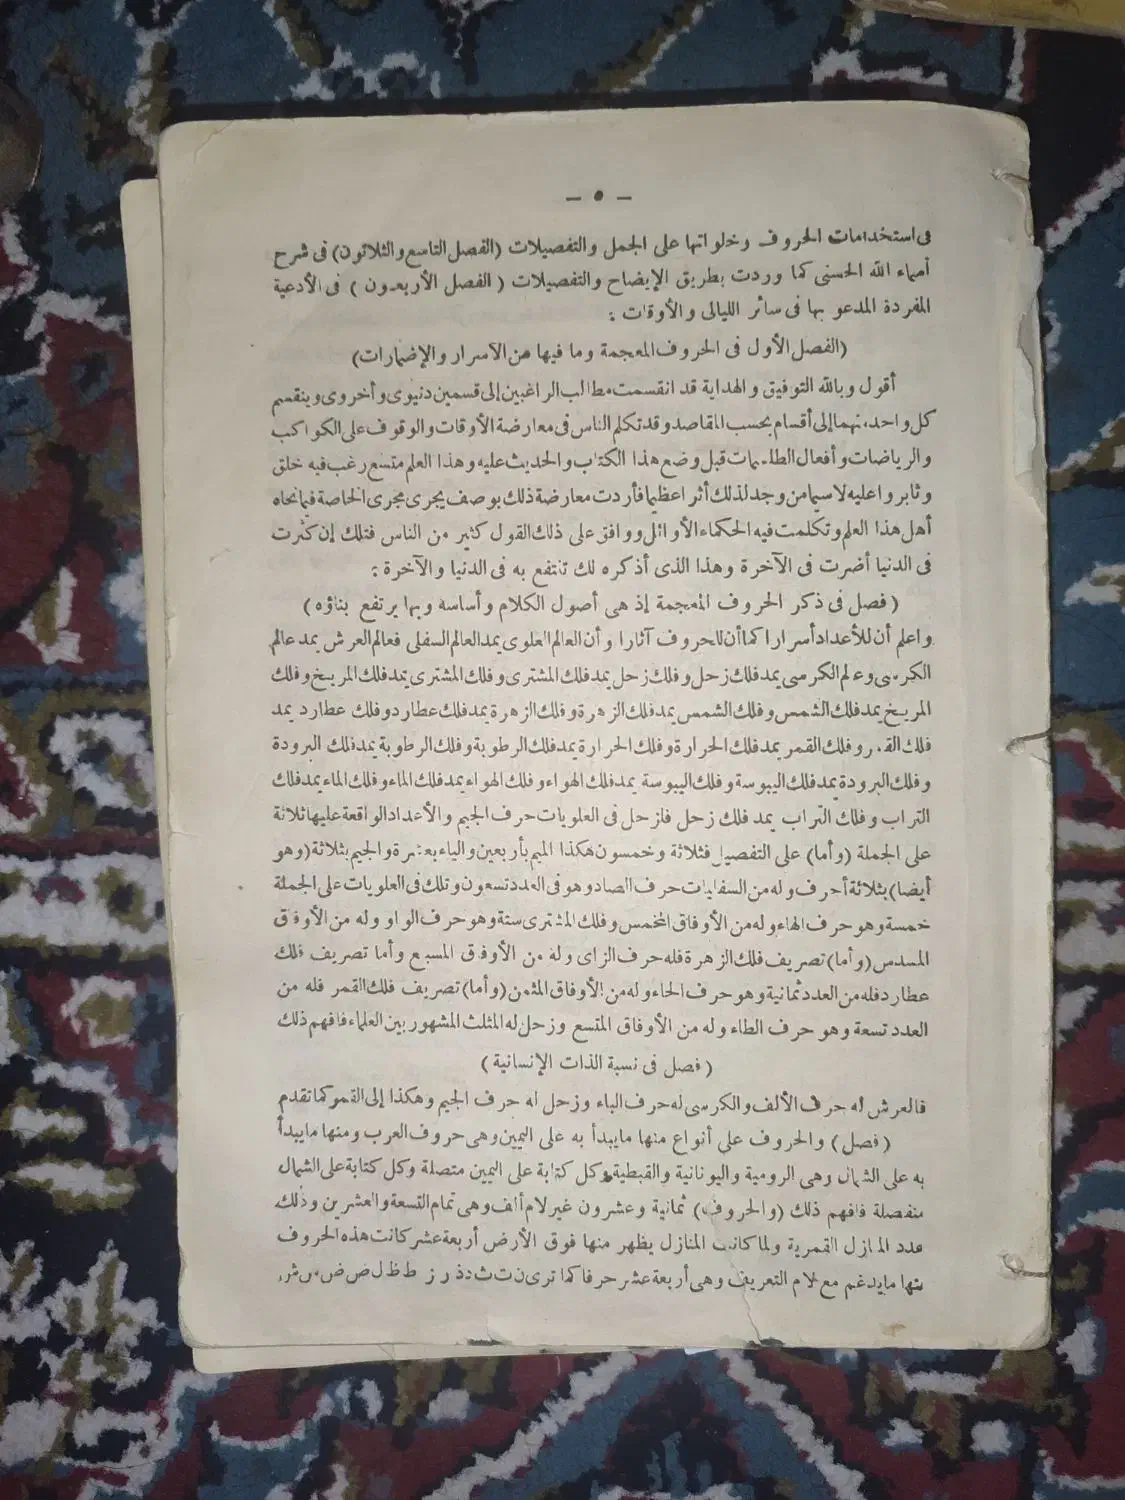 — ٥ —
فى استخدامات الحروف وخلواتها على الجمل والتفصيلات (الفصل التاسع والثلاثون) فى شرح
أسماء الله الحسنى كما وردت بطريق الإيضاح والتفصيلات ( الفصل الأربعون ) فى الأدعية
المفردة المدعو بها فى سائر الليالى والأوقات :
(الفصل الأول فى الحروف المعجمة وما فيها من الأسرار والإضمارات)
أقول وبالله التوفيق والهداية قد انقسمت مطالب الراغبين إلى قسمين دنيوى وأخروى وينقسم
كل واحد منهما إلى أقسام بحسب المقاصد وقد تكلم الناس فى معارضة الأوقات والوقوف على الكواكب
والرياضات وأفعال الطلسمات قبل وضع هذا الكتاب والحديث عليه وهذا العلم متسع رغب فيه خلق
وثابروا عليه لا سيما من وجد لذلك أثرا عظيما فأردت معارضة ذلك بوصف يجرى مجرى الخاصة فيما نحاه
أهل هذا العلم وتكلمت فيه الحكماء الأوائل ووافق على ذلك القول كثير من الناس فتلك إن كثرت
فى الدنيا أضرت فى الآخرة وهذا الذى أذكره لك تنتفع به فى الدنيا والآخرة :
( فصل فى ذكر الحروف المعجمة إذ هى أصول الكلام وأساسه وبها يرتفع بناؤه )
واعلم أن للأعداد أسرارا كما أن للحروف آثارا وأن العالم العلوى يمد العالم السفلى فعالم العرش يمد عالم
الكرسى وعالم الكرسى يمد فلك زحل وفلك زحل يمد فلك المشترى وفلك المشترى يمد فلك المريخ وفلك
المريخ يمد فلك الشمس وفلك الشمس يمد فلك الزهرة وفلك الزهرة يمد فلك عطارد وفلك عطارد يمد
فلك القمر وفلك القمر يمد فلك الحرارة وفلك الحرارة يمد فلك الرطوبة وفلك الرطوبة يمد فلك البرودة
وفلك البرودة يمد فلك اليبوسة وفلك اليبوسة يمد فلك الهواء وفلك الهواء يمد فلك الماء وفلك الماء يمد فلك
التراب وفلك التراب يمد فلك زحل فلزحل فى العلويات حرف الجيم والأعداد الواقعة عليها ثلاثة
على الجملة (وأما) على التفصيل فثلاثة وخمسون هكذا الميم بأربعين والياء بعشرة والجيم بثلاثة (وهو
أيضا) بثلاثة أحرف وله من السفليات حرف الصاد وهو فى العدد تسعون وتلك فى العلويات على الجملة
خمسة وهو حرف الهاء وله من الأوفاق المخمس وفلك المشترى ستة وهو حرف الواو وله من الأوفاق
المسدس (وأما) تصريف فلك الزهرة فله حرف الزاى وله من الأوفاق المسبع وأما تصريف فلك
عطارد فله من العدد ثمانية وهو حرف الحاء وله من الأوفاق المثمن (وأما) تصريف فلك القمر فله من
العدد تسعة وهو حرف الطاء وله من الأوفاق المتسع وزحل له المثلث المشهور بين العلماء فافهم ذلك
( فصل فى نسبة الذات الإنسانية )
فالعرش له حرف الألف والكرسى له حرف الباء وزحل له حرف الجيم وهكذا إلى القمر كما تقدم
(فصل) والحروف على أنواع منها ما يبدأ به على اليمين وهى حروف العرب ومنها ما يبدأ
به على الشمال وهى الرومية واليونانية والقبطية وكل كتابة على اليمين متصلة وكل كتابة على الشمال
منفصلة فافهم ذلك (والحروف) ثمانية وعشرون غير لام ألف وهى تمام التسعة والعشرين وذلك
عدد المنازل القمرية ولما كانت المنازل يظهر منها فوق الأرض أربعة عشر كانت هذه الحروف
منها ما يدغم مع لام التعريف وهى أربعة عشر حرفا كما ترى ن ت ث د ذ ر ز ط ظ ل ص ض س ش